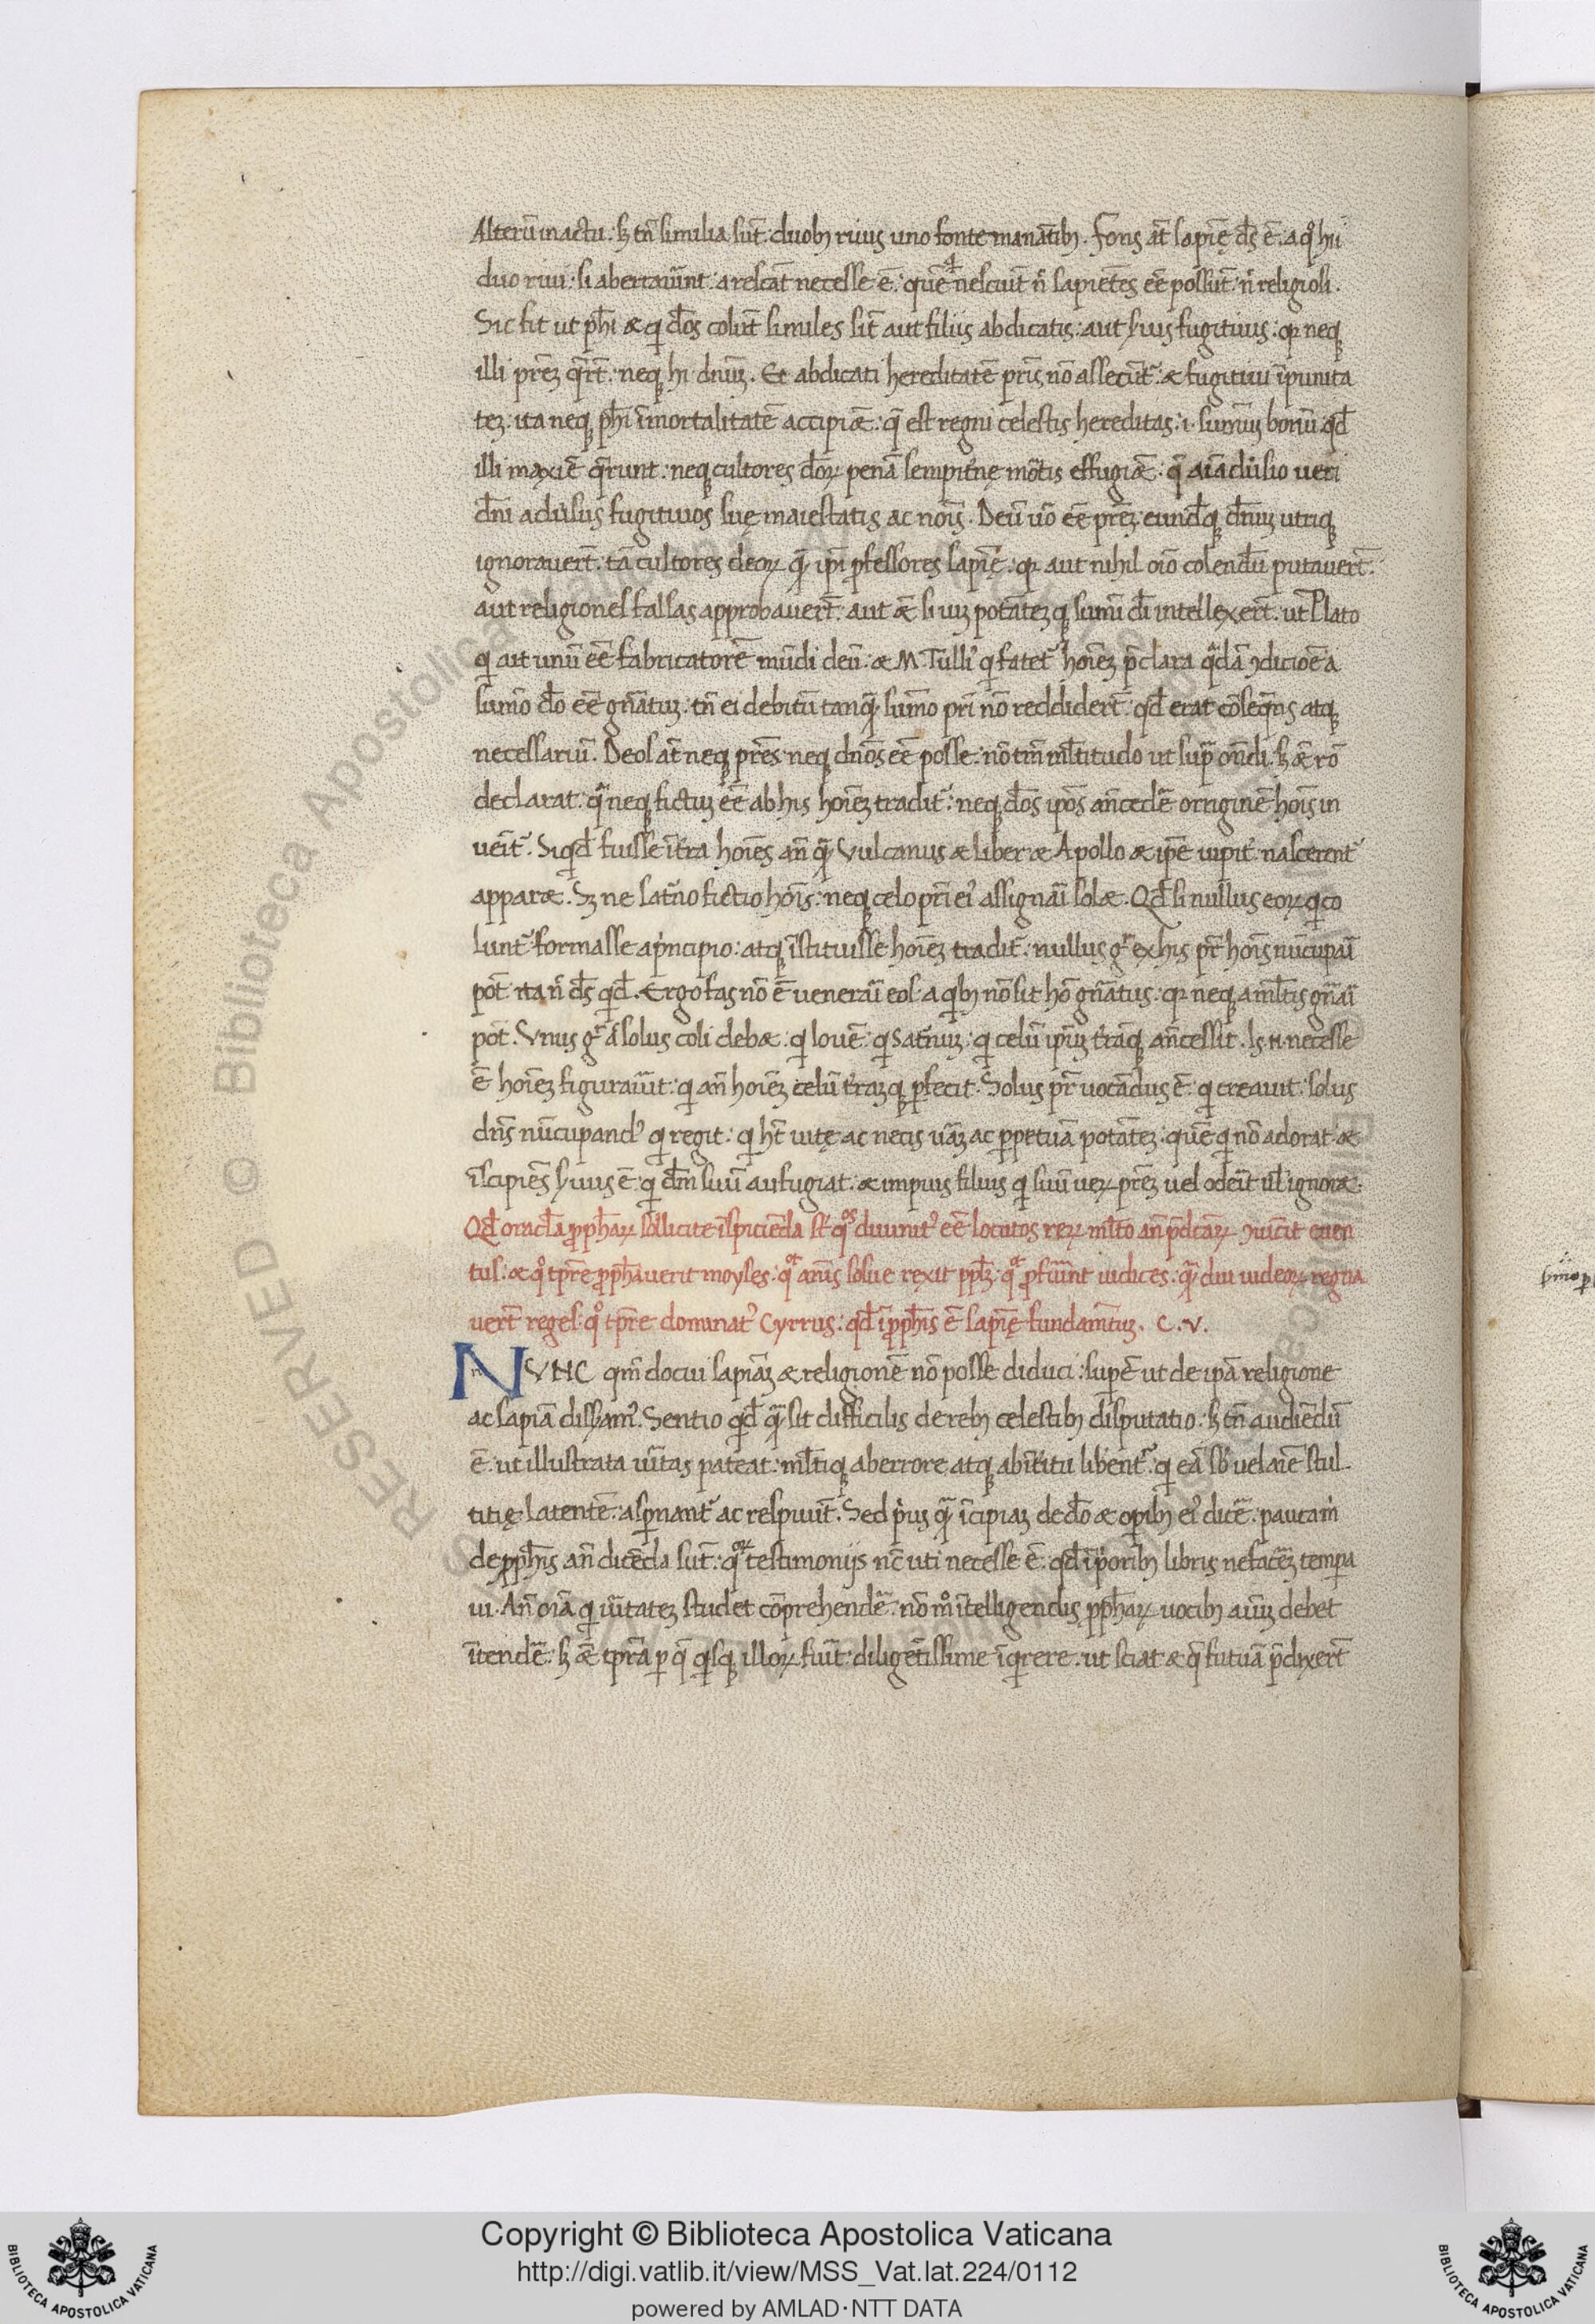 Alterū in actu: sꝫ tn̄ similia sūt: duobꝫ riuis uno fonte manātibꝫ. Fons āt sapīę d̄s ē: a qͦ hii
duo riui: si aberrauīnt: arescāt necesse ē: quē qͥ nesciūt nͨ sapiētes ēē possūt: nͨ religiosi.
Sic fit ut ph̄i & qͥ d̄os colūt similes sīt aut filiis abdicatis: aut s̄uis fugitiuis: qꝛ neqꝫ
illi pr̄eꝫ qr̄ūt: neqꝫ hi dn̄uꝫ. Et abdicati hereditatē pr̄is nō assecūt᷑: & fugitiui īpunita
teꝫ: ita neqꝫ ph̄i īmortalitatē accipiēt: q̄ est regni celestis hereditas: .i. sumūꝫ bonū qd̄
illi maxīe qr̄unt: neqꝫ cultores d̄oꝝ penā sempit̄nę mōtis effugiēt: q̄ aīaduīsio ueri
dn̄i aduīsus fugitiuos suę maiestatis ac noīs. Deū uō ēē pr̄eꝫ eundēqꝫ dn̄uꝫ utriqꝫ
ignorauer̄t: tā cultores deoꝝ qͣꝫ ip̄i ꝓfessores sapīę: qꝛ aut nihil oīo colendū putauer̄t:
aut religiones falsas approbauer̄t: aut & si uiꝫ potāteꝫqꝫ sum̄i d̄i intellexer̄t: ut Plato
qͥ ait unū ēē fabricatorē mūdi deū: & M. Tulliꝰ qͥ fatet᷑ hoīeꝫ p̄clara qͣdā ꝯdicioē a
sum̄o d̄o ēē gn̄atuꝫ: tn̄ ei debitū tanqͣꝫ sum̄o pr̄i nō reddider̄t: qd̄ erat cōseqn̄s atqꝫ
necessariū. Deos āt neqꝫ pr̄es neqꝫ dn̄os ēē posse: nō tm̄ ml̄titudo ut sup̄ on̄di: sꝫ & rō
declarat: qͣ neqꝫ fictuꝫ ēē ab his hoīeꝫ tradit᷑: neqꝫ d̄os ip̄os an̄cedē originē hoīs in
uēit᷑. Siqd̄ fuisse īt̄ra hoīes an̄ qͣꝫ Vulcanus & liber & Apollo & ip̄e iupit̄ nascerent᷑
apparet. Sꝫ ne sat̄no fictio hoīs: neqꝫ celo pr̄i eiꝰ assignāī solet. Qd̄ si nullus eoꝝ qͥ co
lunt᷑ formasse a pͥncipio: atqꝫ īstituisse hoīeꝫ tradit᷑: nullus gͦ ex his pr̄ hoīs nūcupāī
pōt: ita nͨ d̄s qd̄. Ergo fas nō ē uenerāī eos: a qͥbꝫ nō sit hō gn̄atus: qꝛ neqꝫ a ml̄tis gn̄āī
pōt. Vnus gͦ & solus coli debet: qͥ Iouē: qͥ Sat̄nuꝫ: qͥ celū ip̄uꝫ t̄rāqꝫ an̄cessit. Is .n. necesse
ē hoīeꝫ figuraūit: qͥ an̄ hoīeꝫ celū t̄raꝫqꝫ ꝑfecit. Solus pr̄ uocādus ē: qͥ creauit: solus
dn̄s nūcupandꝰ qͥ regit: qͥ hꝫ uitę ac necis uāꝫ ac ꝑpetuā potāteꝫ: quē qͥ nō adorat &
īscipiēs s̄uus ē: qͥ dn̄m suū aufugiat: & impius filius qͥ suū ueꝝ pr̄eꝫ uel oderit ul̄ ignoret.
Qd̄ oracl̄a ꝓph̄aꝝ sollicite īspiciēda st̄: qͦs diuunitꝰ ēē locutos reꝝ ml̄to an̄ p̄dictāꝝ ꝯuīcit euen
tus: & qͦ tp̄re ꝓph̄auerit moyses: qͦt ānis solue rexit ppl̄ꝫ: qͦt ꝓfuīnt iudices: qͣꝫ diu iudeoꝝ regna
uer̄t reges: qͦ tp̄re dominatꝰ Cyrrus: qd̄ ī ꝓph̄is ē sapīę fundam̄tuꝫ. C. V.
NVNC qm̄ docui sapiāꝫ & religionē nō posse diduci: supē ut de ip̄a religione
ac sapiā diss̄amꝰ. Sentio qd̄ qͣꝫ sit difficilis de rebꝫ celestibꝫ disputatio: sꝫ tn̄ audiēdū
ē: ut illustrata uītas pateat: ml̄tiqꝫ ab errore atqꝫ ab īteritu libent᷑: qͥ eā sb̄ uelaīe stul
titię latentē: asꝑnant᷑ ac respuūt. Sed pͥus qͣꝫ īcipiaꝫ de d̄o & oꝑibꝫ eiꝰ dicē: pauca m̄
de ꝓph̄is an̄ dicēda sūt: qͦꝝ testimoniis nc̄ uti necesse ē: qd̄ ī pͥoribꝫ libris ne facēꝫ tempa
ui. An̄ oīa qͥ uītateꝫ studet cōprehendē: nō mͦ ītelligendis ꝓph̄aꝝ uocibꝫ aīuꝫ debet
ītendē: sꝫ & tp̄ra ꝑ q̄ qͥsqꝫ illoꝝ fuīt: diligētissime īqͥrere: ut sciat & q̄ futuā p̄dixer̄t
Copyright © Biblioteca Apostolica Vaticana
http://digi.vatlib.it/view/MSS_Vat.lat.224/0112
powered by AMLAD·NTT DATA
BIBLIOTECA APOSTOLICA VATICANA
BIBLIOTECA APOSTOLICA VATICANA